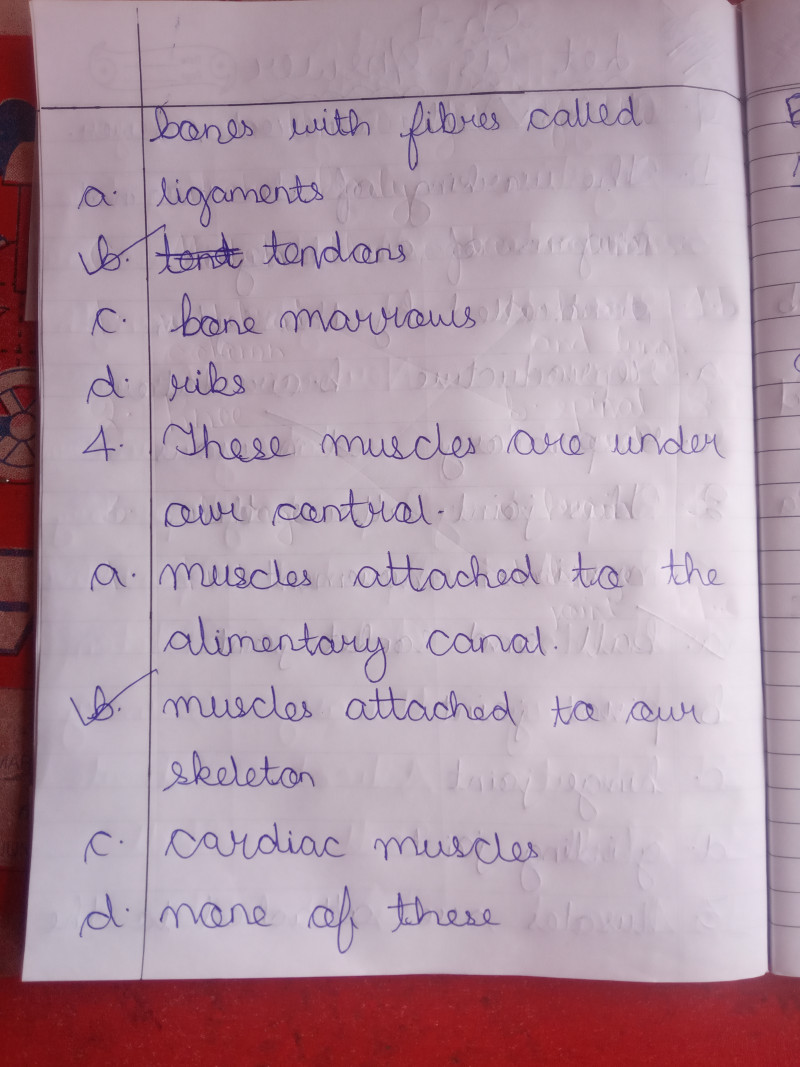 bones with fibres called
a. ligaments
b. tend tendons
c. bone marrows
d. ribs
4. These muscles are under
our control.
a. muscles attached to the
alimentary canal.
b. muscles attached to our
skeleton
c. cardiac muscles
d. none of these